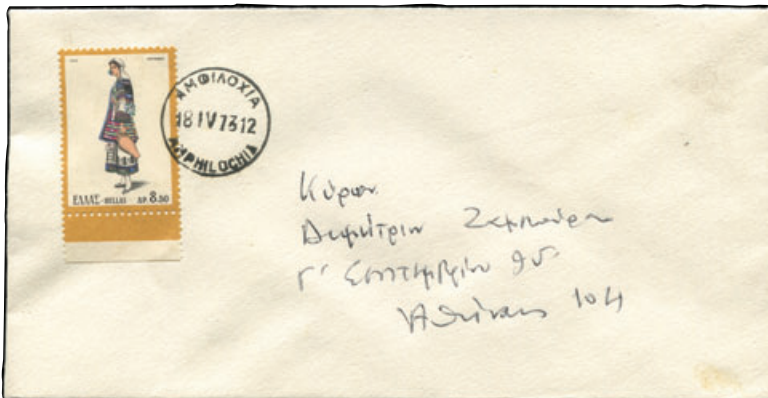 ΕΛΛΑΣ-HELLAS ΔΡ. 8.50
ΑΜΦΙΛΟΧΙΑ
18 IV 73 12
AMPHILOCHIA
Κύριον
Δημήτριον
Γ' Σεπτεμβρίου 90
Αθήνας 104